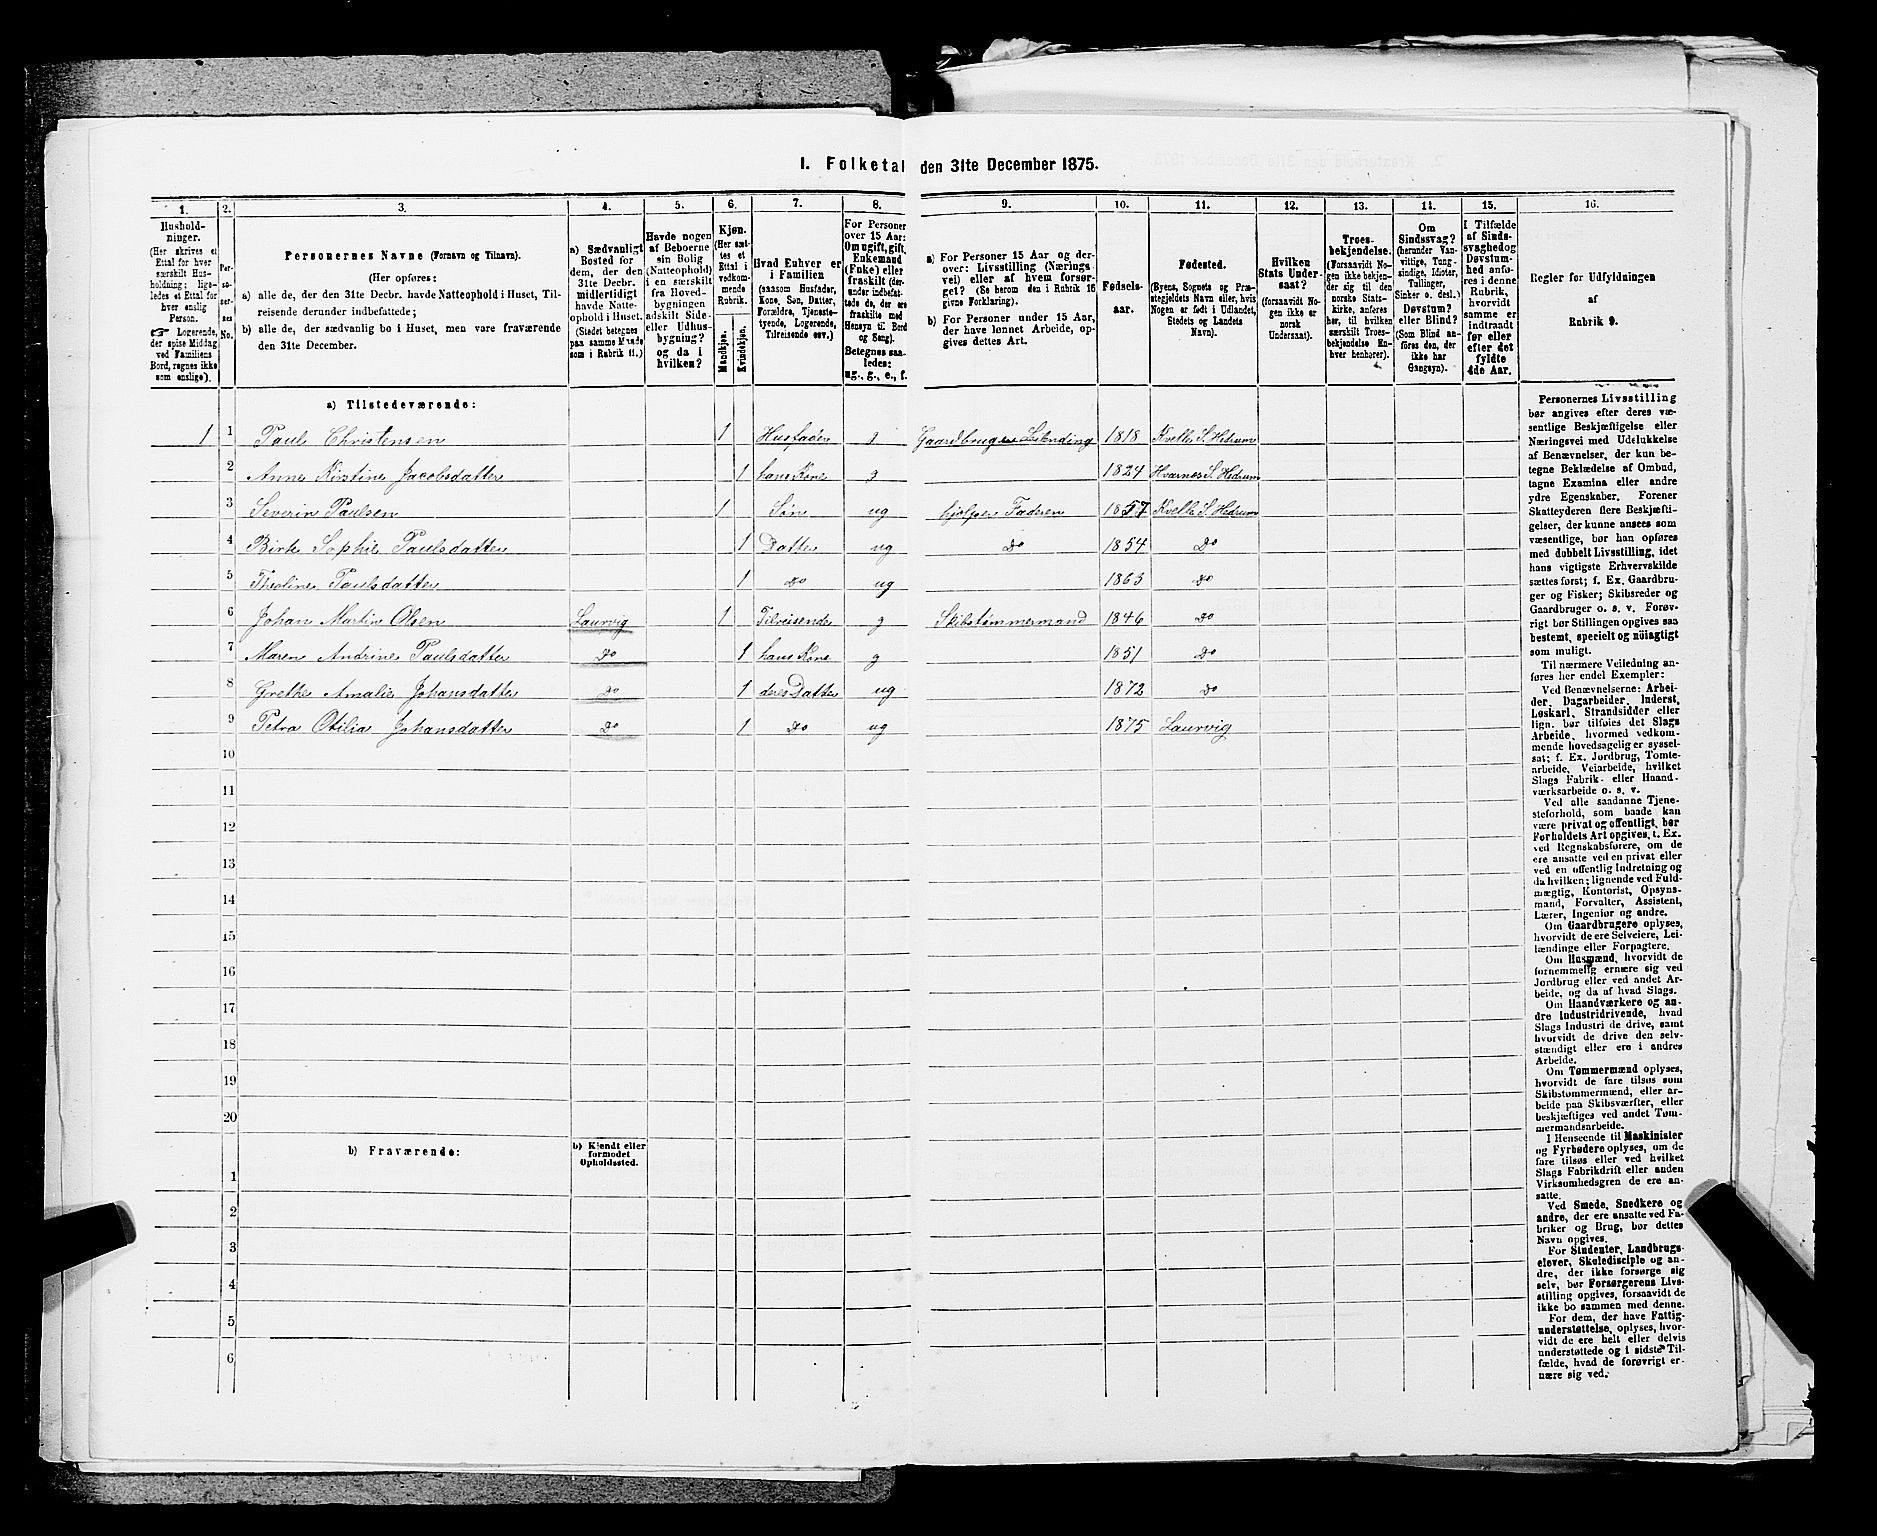 I. Folketal den 31te December 1875.
1. 2. 3. 4. 5. 6. 7. 8. 9. 10. 11. 12. 13. 14. 15. 16.
Hushold-
ninger.
(Her skrives et
Ettal for hver
særskilt Hus-
holdning; lige-
ledes et Ettal for
hver enslig
Person.
☞ Logerende,
der spise Middag
ved Familiens
Bord, regnes ikke
som enslige).
Per-
so-
ner-
nes
No.
Personernes Navne (Fornavn og Tilnavn).
(Her opføres:
a) alle de, der den 31te Decbr. havde Natteophold i Huset, Til-
reisende derunder indbefattede;
b) alle de, der sædvanlig bo i Huset, men vare fraværende
den 31te December.
a) Sædvanligt
Bosted for
dem, der den
31te Decbr.
midlertidigt
havde Natte-
ophold i Huset.
(Stedet betegnes
paa samme Maade
som i Rubrik 11.)
Havde nogen
af Beboerne
sin Bolig
(Natteophold)
i en særskilt
fra Hoved-
bygningen
adskilt Side-
eller Udhus-
bygning?
og da i
hvilken?
Kjøn.
(Her sæt-
tes et
Ettal i
vedkom-
mende
Rubrik.
Mandkjøn.
Kvindekjøn.
Hvad Enhver er
i Familien
(saasom Husfader,
Kone, Søn, Datter,
Forældre, Tjeneste-
tyende, Logerende,
Tilreisende osv.)
For Personer
over 15 Aar:
Om ugift, gift,
Enkemand
(Enke) eller
fraskilt (der-
under indbefat-
tede de, der ere
fraskilte med
Hensyn til Bord
og Seng).
Betegnes saa-
ledes:
ug., g., e., f.
a) For Personer 15 Aar og der-
over: Livsstilling (Nærings-
vei) eller af hvem forsør-
get? (Se herom den i Rubrik 16
givne Forklaring).
b) For Personer under 15 Aar,
der have lønnet Arbeide, op-
gives dettes Art.
Fødsels-
aar.
Fødested.
(Byens, Sognets og Præ-
stegjeldets Navn eller, hvis
Nogen er født i Udlandet,
Stedets og Landets
Navn).
Hvilken
Stats Under-
saat?
(forsaavidt No-
gen ikke er
norsk
Undersaat).
Troes-
bekjendelse.
(Forsaavidt No-
gen ikke bekjen-
der sig til den
norske Stats-
kirke, anføres
her, til hvilken
særskilt Troes-
bekjendelse En-
hver henhører).
Om
Sindssvag?
(herunder Van-
vittige, Tung-
sindige, Idioter,
Tullinger,
Sinker o. desl.)
Døvstum?
eller Blind?
(Som Blind an-
føres den, der
ikke har
Gangsyn).
I Tilfælde
af Sinds-
svaghed og
Døvstum-
hed anfø-
res i denne
Rubrik,
hvorvidt
samme er
indtraadt
før eller
efter det
fyldte
4de Aar.
Regler for Udfyldningen
af
Rubrik 9.
a) Tilstedeværende:
1 1 Paul Christensen 1 Husfader g Gaardbruger Leilending 1818 Kvelle S. Hedrum
2 Anne Kirstine Jacobsdatter 1 hans Kone g 1824 Hvarnes S. Hedrum
3 Severin Paulsen 1 Søn ug hjelper Faderen 1857 Kvelle S. Hedrum
4 Birte Sophie Paulsdatter 1 Datter ug Do 1854 Do
5 Theoline Paulsdatter 1 Do ug 1863 Do
6 Johan Martin Olsen Laurvig 1 Tilreisende g Skibstømmermand 1846 Do
7 Maren Andrine Paulsdatter Do 1 hans Kone g 1851 Do
8 Grethe Amalie Johansdatter Do 1 deres Datter ug 1872 Do
9 Petra Otilia Johansdatter Do 1 Do ug 1875 Laurvig
10
11
12
13
14
15
16
17
18
19
20
b) Fraværende:
b) Kjendt eller
formodet
Opholdssted.
1
2
3
4
5
6
Personernes Livsstilling
bør angives efter deres væ-
sentlige Beskjæftigelse eller
Næringsvei med Udelukkelse
af Benævnelser, der kun be-
tegne Beklædelse af Ombud,
tagne Examina eller andre
ydre Egenskaber. Forener
Skatteyderen flere Beskjæfti-
gelser, der kunne ansees som
væsentlige, bør han opføres
med dobbelt Livsstilling, idet
hans vigtigste Erhvervskilde
sættes først; f. Ex. Gaardbru-
ger og Fisker; Skibsreder og
Gaardbruger o. s. v. Forøv-
rigt bør Stillingen opgives saa
bestemt, specielt og nøiagtigt
som muligt.
Til nærmere Veiledning an-
føres her endel Exempler:
Ved Benævnelserne: Arbei-
der, Dagarbeider, Inderst,
Løskarl, Strandsidder eller
lign. bør tilføies det Slags
Arbeide, hvormed vedkom-
mende hovedsagelig er syssel-
sat; f. Ex. Jordbrug, Tomte-
arbeide, Veiarbeide, hvilket
Slags Fabrik- eller Haand-
værksarbeide o. s. v.
Ved alle saadanne Tjene-
steforhold, som baade kan
være privat og offentligt, bør
Forholdets Art opgives, t. Ex.
ved Regnskabsførere, om de
ere ansatte ved en privat eller
ved en offentlig Indretning og
da hvilken; lignende ved Fuld-
mægtig, Kontorist, Opsyns-
mand, Forvalter, Assistent,
Lærer, Ingeniør og andre.
Om Gaardbrugere oplyses,
hvorvidt de ere Selveiere, Lei-
lændinge eller Forpagtere.
Om Husmænd, hvorvidt de
fornemmelig ernære sig ved
Jordbrug eller ved andet Ar-
beide, og da af hvad Slags.
Om Haandværkere og an-
dre Industridrivende, hvad
Slags Industri de drive, samt
hvorvidt de drive den selv-
stændigt eller ere i andres
Arbeide.
Om Tømmermænd oplyses,
hvorvidt de fare tilsøs som
Skibstømmermænd, eller ar-
beide paa Skibsværfter, eller
beskjæftiges ved andet Tøm-
mermandsarbeide.
I Henseende til Maskinister
og Fyrbødere oplyses, om de
fare tilsøs eller ved hvilket
Slags Fabrikdrift eller anden
Virksomhedsgren de ere an-
satte.
Ved Smede, Snedkere og
andre, der ere ansatte ved Fa-
briker og Brug, bør dettes
Navn opgives.
For Studenter, Landbrugs-
elever, Skoledisciple og an-
dre, der ikke forsørge sig
selv, bør Forsørgerens Livs-
stilling opgives, forsaavidt de
ikke bo sammen med denne.
For dem, der have Fattig-
understøttelse, oplyses, hvor-
vidt de ere helt eller delvis
understøttede og i sidste Til-
fælde, hvad de forøvrigt er-
nære sig ved.